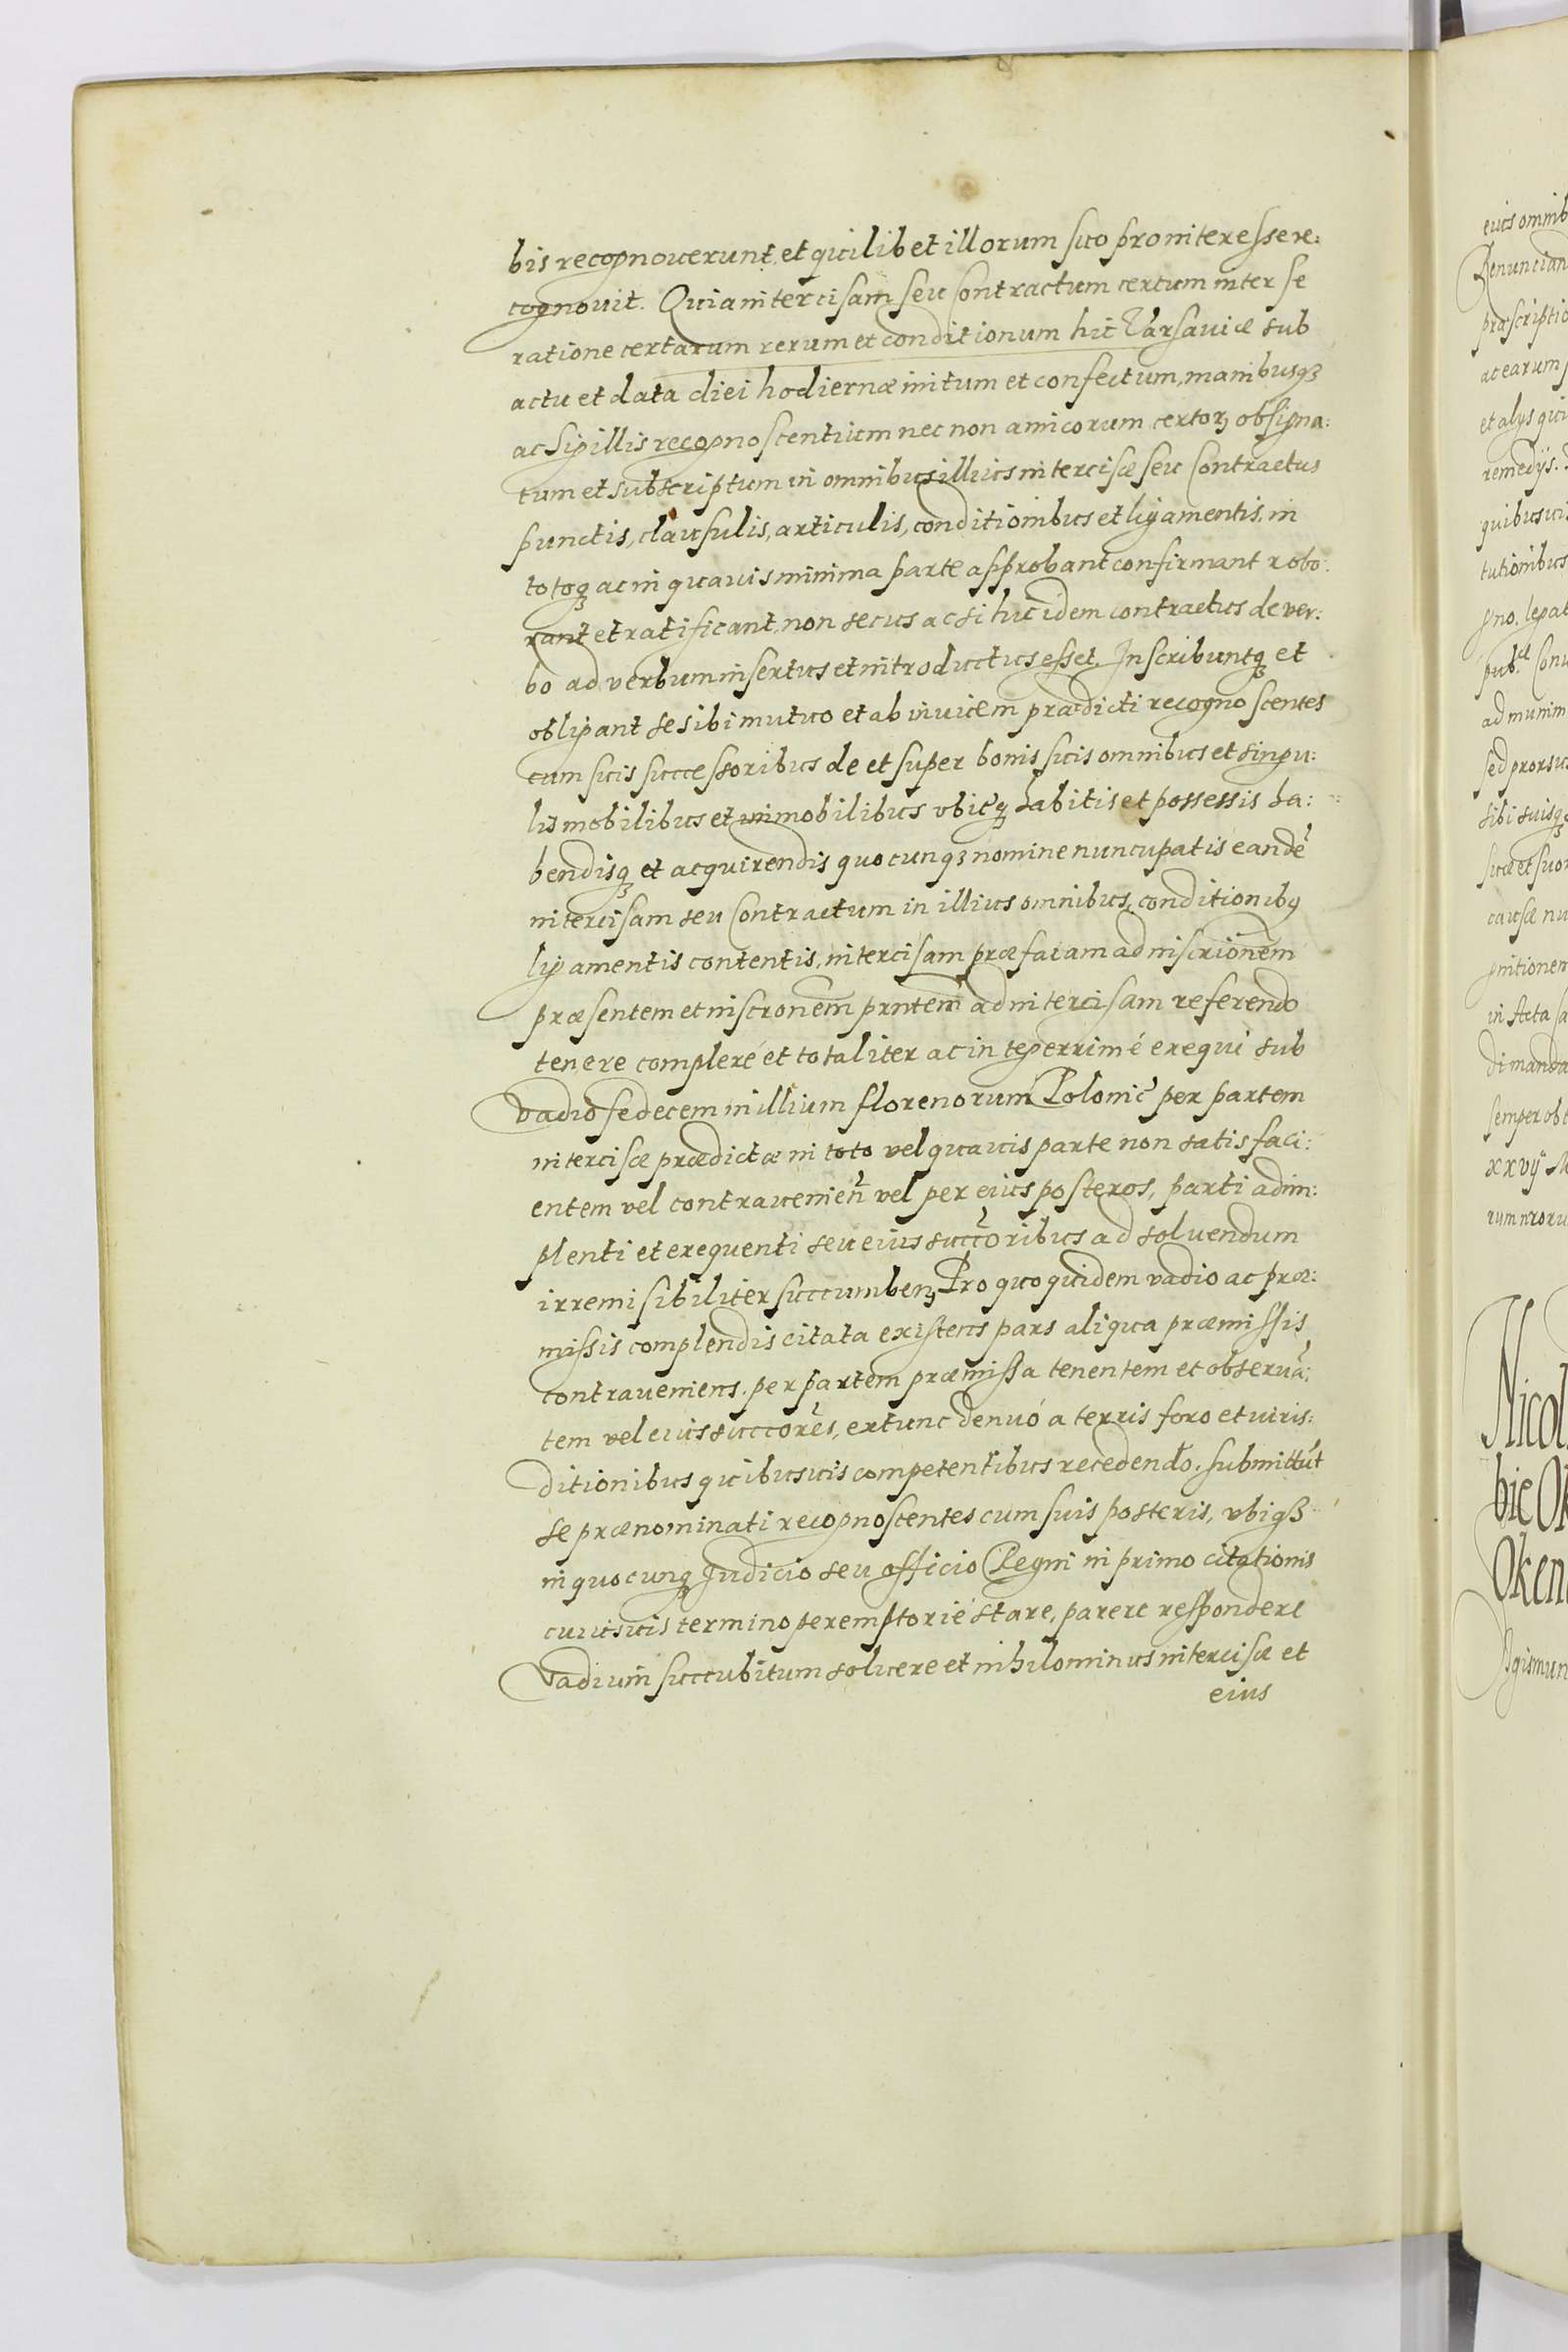 bis recognoverunt, et quilibet illorum suo pro interesse re:
cognovit. Quia intercisam seu Contractum certum inter se
ratione certarum rerum et conditionum hic Varsaviæ sub
actu et data diei hodiernæ initum et confectum, manibusqꝫ
ac Sigillis recognoscentium nec non amicorum certoꝝ obsigna:
tum et subscriptum in omnibus illius intercisæ seu Contractus
punctis, clausulis, articulis, conditionibus et ligamentis, in
totoqꝫ ac in quavis minima parte approbant confirmant robo:
rant et ratificant, non secus ac si huc idem contractus de ver:
bo ad verbum insertus et introductus esset. Inscribuntqꝫ et
obligant se sibi mutuo et ab invicem prædicti recognoscentes
cum suis successoribus de et super bonis suis omnibus et singu:
lis mobilibus et immobilibus vbicqꝫ habitis et possessis ha:
bendisqꝫ et acquirendis quocunqꝫ nomine nuncupatis eandẽ
intercisam seu Contractum in illius omnibus, conditionibꝰ
ligamentis contentis, intercisam præfatam ad inscrionem
præsentem et inscronem prntem ad intercisam referendo
tenere complere et totaliter ac integerrimé exequi sub
Vadio sedecem millium florenorum Polonic̃ per partem
intercisæ prædictæ in toto vel quavis parte non satisfaci:
entem vel contravenien̄ vel per eius posteros, parti adim:
plenti et exequenti seu eius succ̃oribus ad solvendum
irremisibiliter succumbenꝫ Pro quo quidem vadio ac præ:
missis complendis citata existens pars aliqua præmissis
contraveniens. per partem præmissa tenentem et observã:
tem vel eius succorẽs, extunc denuó a terris foro et iuris:
ditionibus quibusvis competentibus recedendo. submittũt
se prænominati recognoscentes cum suis posteris, vbiqꝫ
in quocunqꝫ Iudicio seu officio Regni in primo citationis
cuiusuis termino peremptorié stare, parere respondere
Vadium succubitum solvere et nihilominus intercisæ et
eius
eius omnib
Renuncian
præscriptio
ac earum
et alys qui
remedÿs.
quibusvi
tutionibus
gno. legat
pub.
ad munim
sed prorsus
sibi suisqꝫ
suæ et suor
causæ nu
gnitionem
in Acta sa
di manda
semper ob
xxvÿ
rum nroru
Nicol
bie Ok
Oken
Sigismun